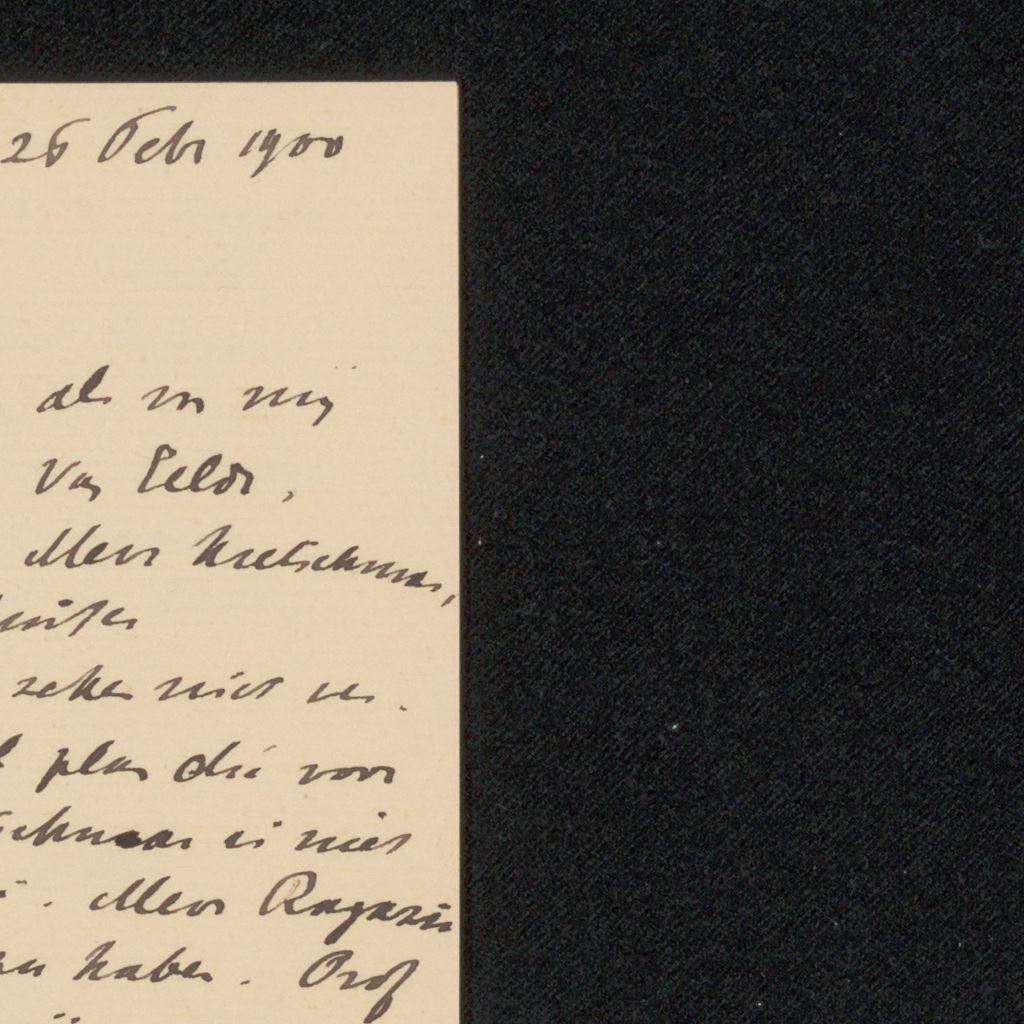 26 Febr 1900
als in mij
Van Eelde,
Meer Kretschmar,
zeker niet in.
plan die voor
schmar is niet
. Meer Ragazin
haben. Prof